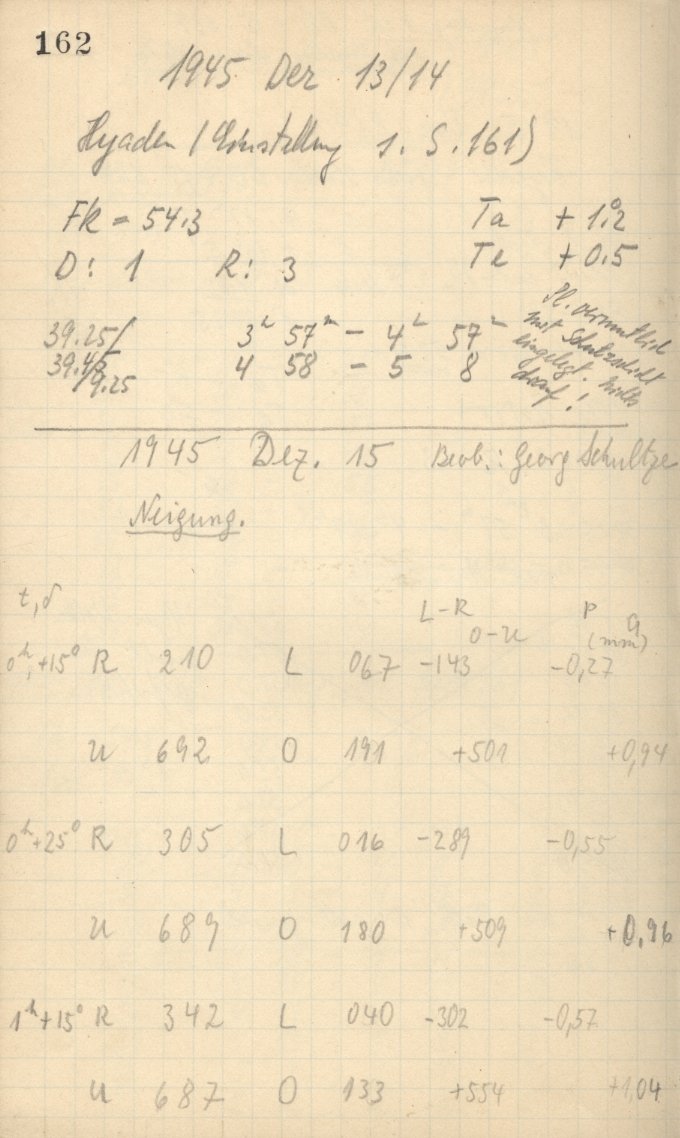 162
1945 Dez 13/14
Hyaden (Einstellung s. S. 161)
Fk = 54.3 Ta + 1.°2
D: 1 R: 3 Te + 0.5
39.25/ 3ʰ 57ᵐ – 4ʰ 57ᵐ
39.45/9.25 4 58 – 5 8
Pl. vermutlich
mit Schutzschicht
eingelegt. Nichts
drauf!
1945 Dez. 15 Beob.: Georg Schultze
Neigung.
t, δ
L-R P
O-U (mm) Q
0ʰ, +15° R 210 L 067 -143 -0,27
U 692 O 191 +501 +0,94
0ʰ +25° R 305 L 016 -289 -0,55
U 689 O 180 +509 +0,96
1ʰ +15° R 342 L 040 -302 -0,57
U 687 O 133 +554 +1,04